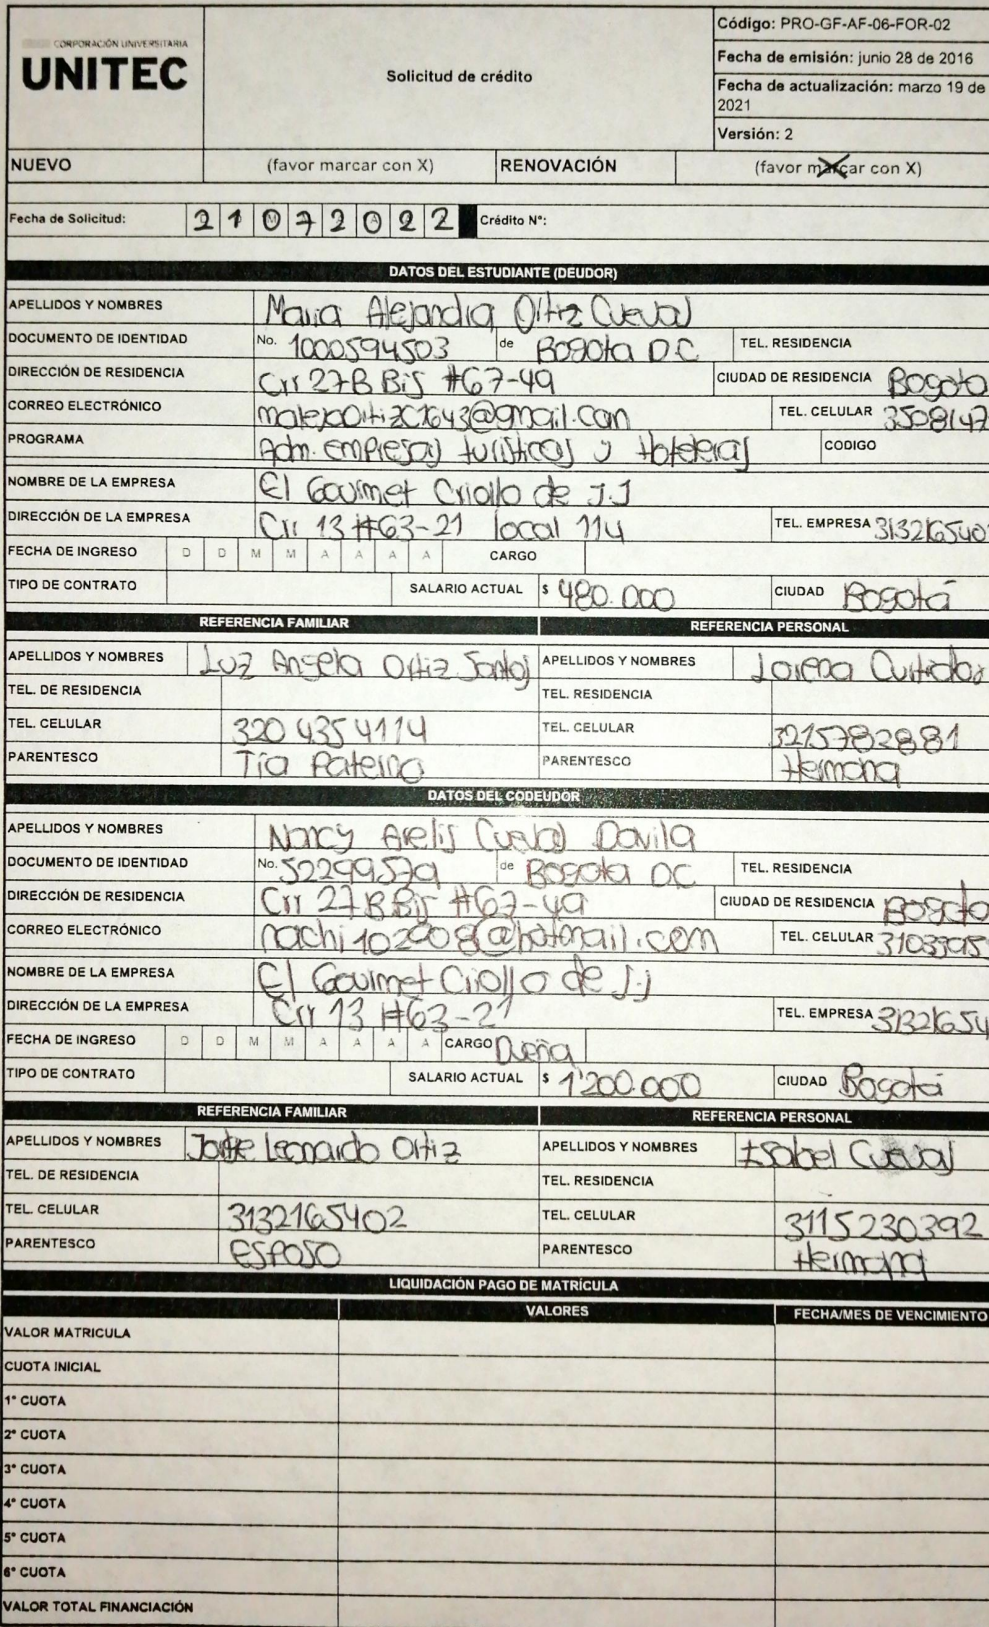 CORPORACIÓN UNIVERSITARIA
UNITEC
Solicitud de crédito
Código: PRO-GF-AF-06-FOR-02
Fecha de emisión: junio 28 de 2016
Fecha de actualización: marzo 19 de
2021
Versión: 2
NUEVO (favor marcar con X) RENOVACIÓN (favor marcar con X)
Fecha de Solicitud: 2 1 0 7 2 0 2 2 Crédito N°:
DATOS DEL ESTUDIANTE (DEUDOR)
APELLIDOS Y NOMBRES Maria Alejandra Ortiz Cuevas
DOCUMENTO DE IDENTIDAD No. 1000594503 de Bogota D.C TEL. RESIDENCIA
DIRECCIÓN DE RESIDENCIA Crr 27B Bis #67-49 CIUDAD DE RESIDENCIA Bogota
CORREO ELECTRÓNICO @gmail.com TEL. CELULAR 3508147
PROGRAMA Adm. empresas turísticas y Hoteleras CODIGO
NOMBRE DE LA EMPRESA El Gourmet Criollo de J.J
DIRECCIÓN DE LA EMPRESA Crr 13 #63-21 local 114 TEL. EMPRESA 313216540
FECHA DE INGRESO D D M M A A A A CARGO
TIPO DE CONTRATO SALARIO ACTUAL $ 480.000 CIUDAD Bogotá
REFERENCIA FAMILIAR REFERENCIA PERSONAL
APELLIDOS Y NOMBRES Luz Angela Ortiz Santos APELLIDOS Y NOMBRES Lorena
TEL. DE RESIDENCIA TEL. RESIDENCIA
TEL. CELULAR 320 4354114 TEL. CELULAR 3215782881
PARENTESCO Tía Paterna PARENTESCO Hermana
DATOS DEL CODEUDOR
APELLIDOS Y NOMBRES Nancy Arelis Cuevas Davila
DOCUMENTO DE IDENTIDAD No. 52299579 de Bogota DC TEL. RESIDENCIA
DIRECCIÓN DE RESIDENCIA Crr 27B Bis #67-49 CIUDAD DE RESIDENCIA Bogota
CORREO ELECTRÓNICO nachi102008@hotmail.com TEL. CELULAR 3103395
NOMBRE DE LA EMPRESA El Gourmet Criollo de J.J
DIRECCIÓN DE LA EMPRESA Crr 13 #63-21 TEL. EMPRESA 31321654
FECHA DE INGRESO D D M M A A A A CARGO Dueña
TIPO DE CONTRATO SALARIO ACTUAL $ 1'200.000 CIUDAD Bogotá
REFERENCIA FAMILIAR REFERENCIA PERSONAL
APELLIDOS Y NOMBRES Jorge Leonardo Ortiz APELLIDOS Y NOMBRES Isabel Cuevas
TEL. DE RESIDENCIA TEL. RESIDENCIA
TEL. CELULAR 3132165402 TEL. CELULAR 3115230392
PARENTESCO ESPOSO PARENTESCO Hermana
LIQUIDACIÓN PAGO DE MATRÍCULA
VALORES FECHA/MES DE VENCIMIENTO
VALOR MATRICULA
CUOTA INICIAL
1° CUOTA
2° CUOTA
3° CUOTA
4° CUOTA
5° CUOTA
6° CUOTA
VALOR TOTAL FINANCIACIÓN